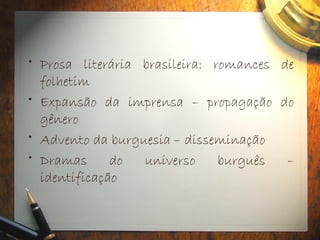 • Prosa literária brasileira: romances de
folhetim
• Expansão da imprensa – propagação do
gênero
• Advento da burguesia – disseminação
• Dramas do universo burguês –
identificação